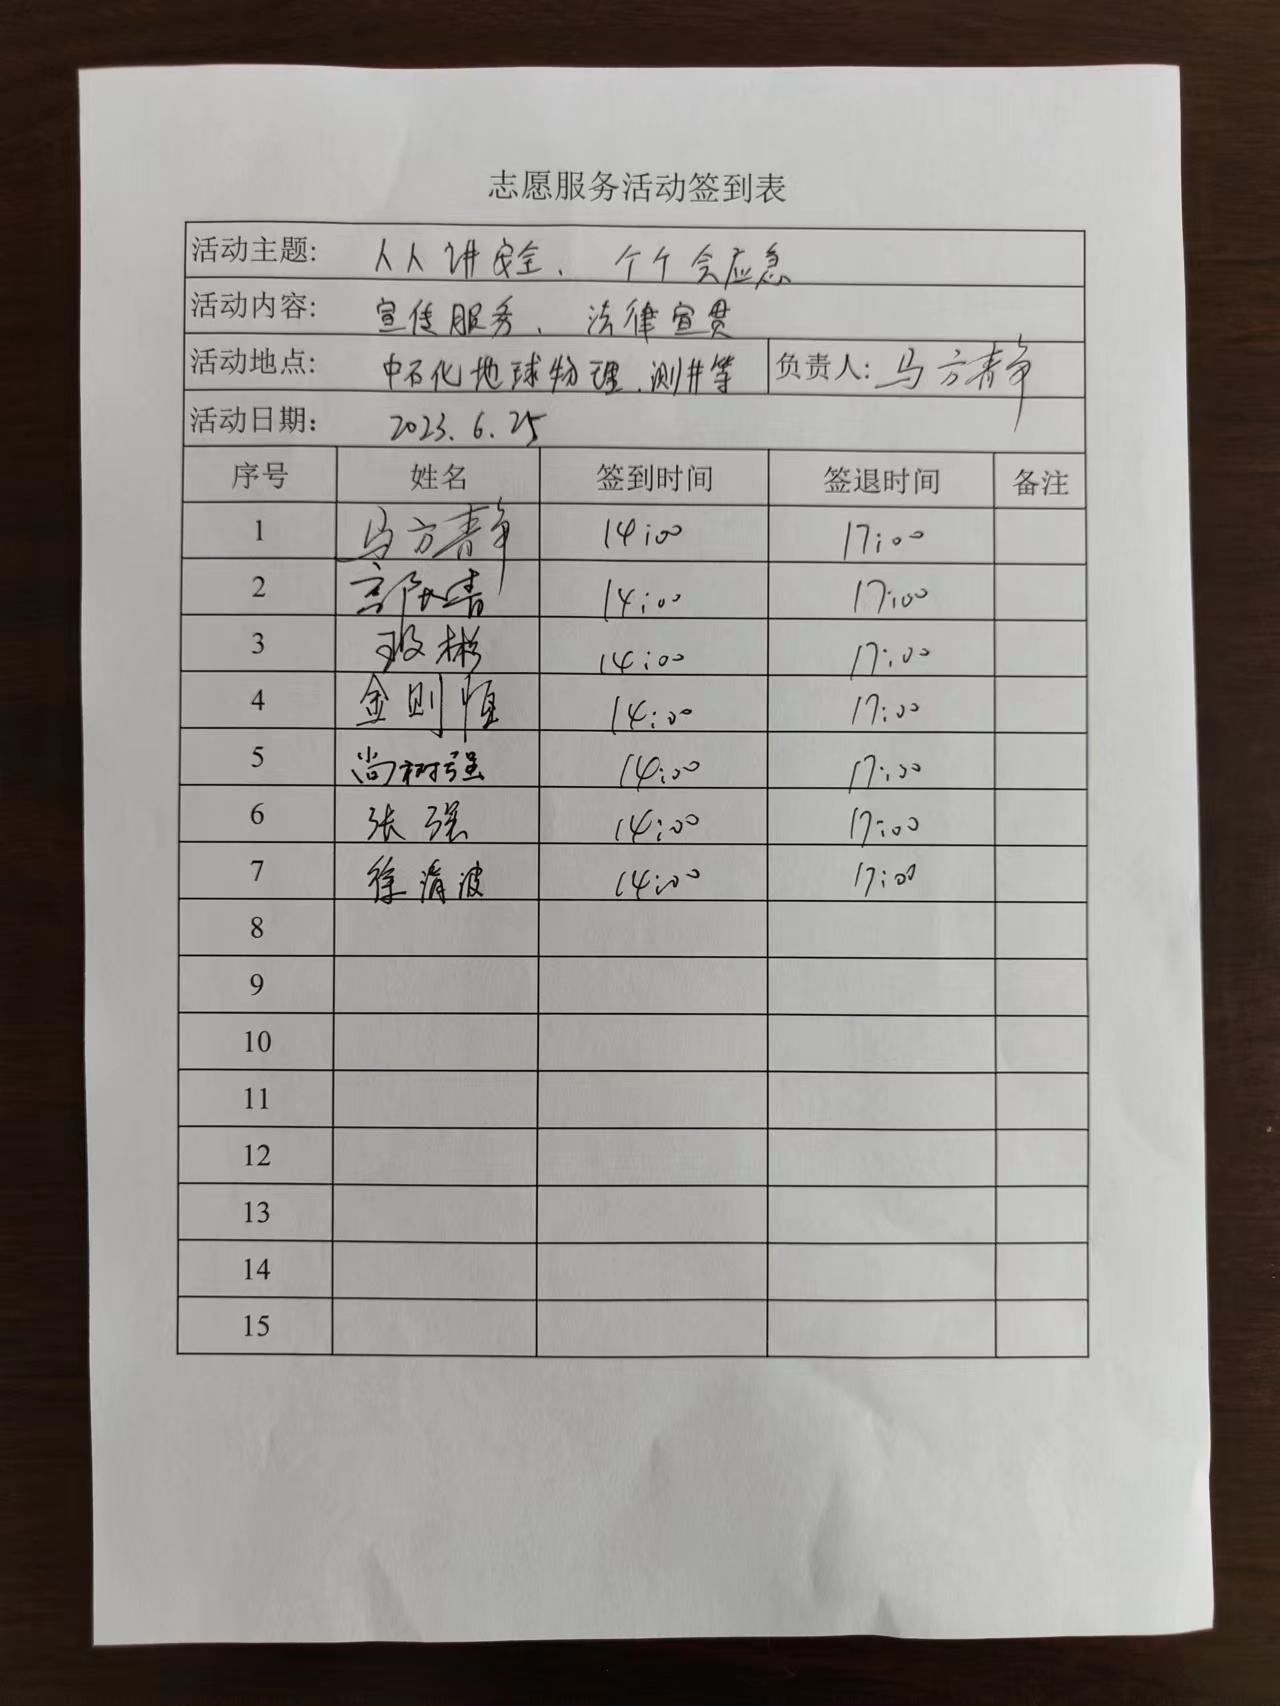 志愿服务活动签到表
活动主题: 人人讲安全、个个会应急
活动内容: 宣传服务、法律宣贯
活动地点: 中石化地球物理、测井等 负责人: 马方静
活动日期: 2023.6.25
序号 姓名 签到时间 签退时间 备注
1 马方静 14:00 17:00
2 14:00 17:00
3 14:00 17:00
4 金则恒 14:00 17:00
5 尚树强 14:00 17:00
6 张强 14:00 17:00
7 徐清波 14:00 17:00
8
9
10
11
12
13
14
15